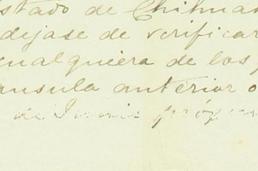 stado de Chihua
dejase de verificar
cualquiera de los p
ansula anterior o
de Junio próxi